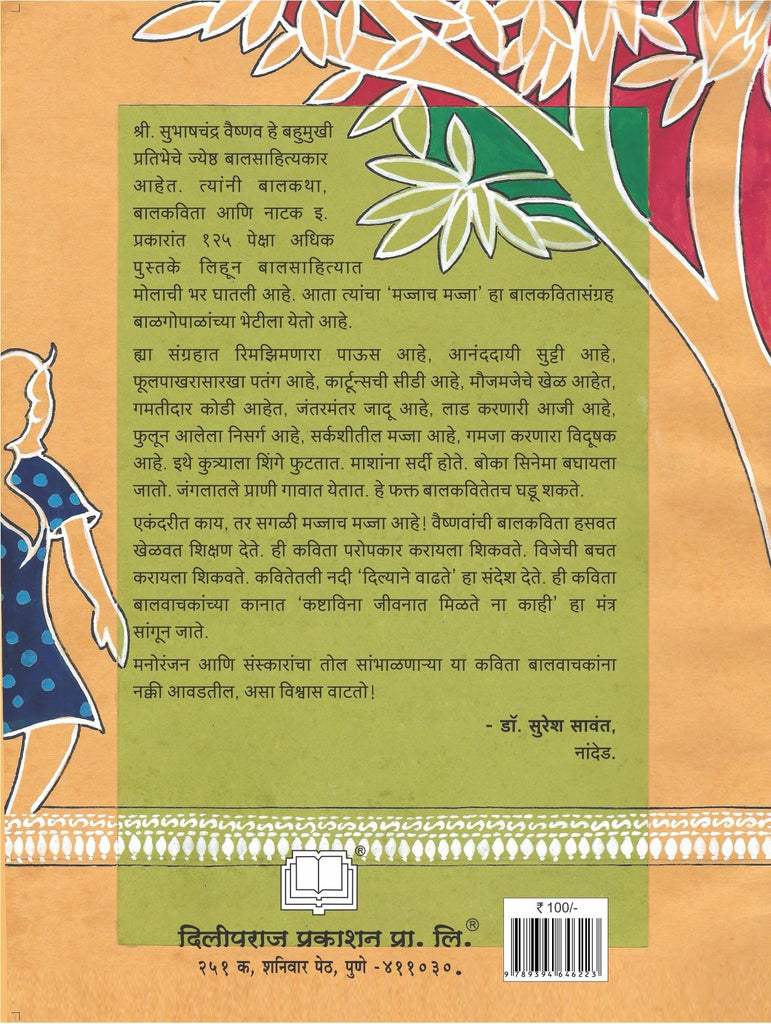 श्री. सुभाषचंद्र वैष्णव हे बहुमुखी
प्रतिभेचे ज्येष्ठ बालसाहित्यकार
आहेत. त्यांनी बालकथा,
बालकविता आणि नाटक इ.
प्रकारांत १२५ पेक्षा अधिक
पुस्तके लिहून बालसाहित्यात
मोलाची भर घातली आहे. आता त्यांचा ‘मज्जाच मज्जा’ हा बालकवितासंग्रह
बाळगोपाळांच्या भेटीला येतो आहे.
ह्या संग्रहात रिमझिमणारा पाऊस आहे, आनंददायी सुट्टी आहे,
फूलपाखरासारखा पतंग आहे, कार्टून्सची सीडी आहे, मौजमजेचे खेळ आहेत,
गमतीदार कोडी आहेत, जंतरमंतर जादू आहे, लाड करणारी आजी आहे,
फुलून आलेला निसर्ग आहे, सर्कशीतील मज्जा आहे, गमजा करणारा विदूषक
आहे. इथे कुत्र्याला शिंगे फुटतात. माशांना सर्दी होते. बोका सिनेमा बघायला
जातो. जंगलातले प्राणी गावात येतात. हे फक्त बालकवितेतच घडू शकते.
एकंदरीत काय, तर सगळी मज्जाच मज्जा आहे! वैष्णवांची बालकविता हसवत
खेळवत शिक्षण देते. ही कविता परोपकार करायला शिकवते. विजेची बचत
करायला शिकवते. कवितेतली नदी ‘दिल्याने वाढते’ हा संदेश देते. ही कविता
बालवाचकांच्या कानात ‘कष्टाविना जीवनात मिळते ना काही’ हा मंत्र
सांगून जाते.
मनोरंजन आणि संस्कारांचा तोल सांभाळणाऱ्या या कविता बालवाचकांना
नक्की आवडतील, असा विश्वास वाटतो!
- डॉ. सुरेश सावंत,
नांदेड.
®
दिलीपराज प्रकाशन प्रा. लि.®
२५१ क, शनिवार पेठ, पुणे -४११०३०.
₹ 100/-
9 789394 646223